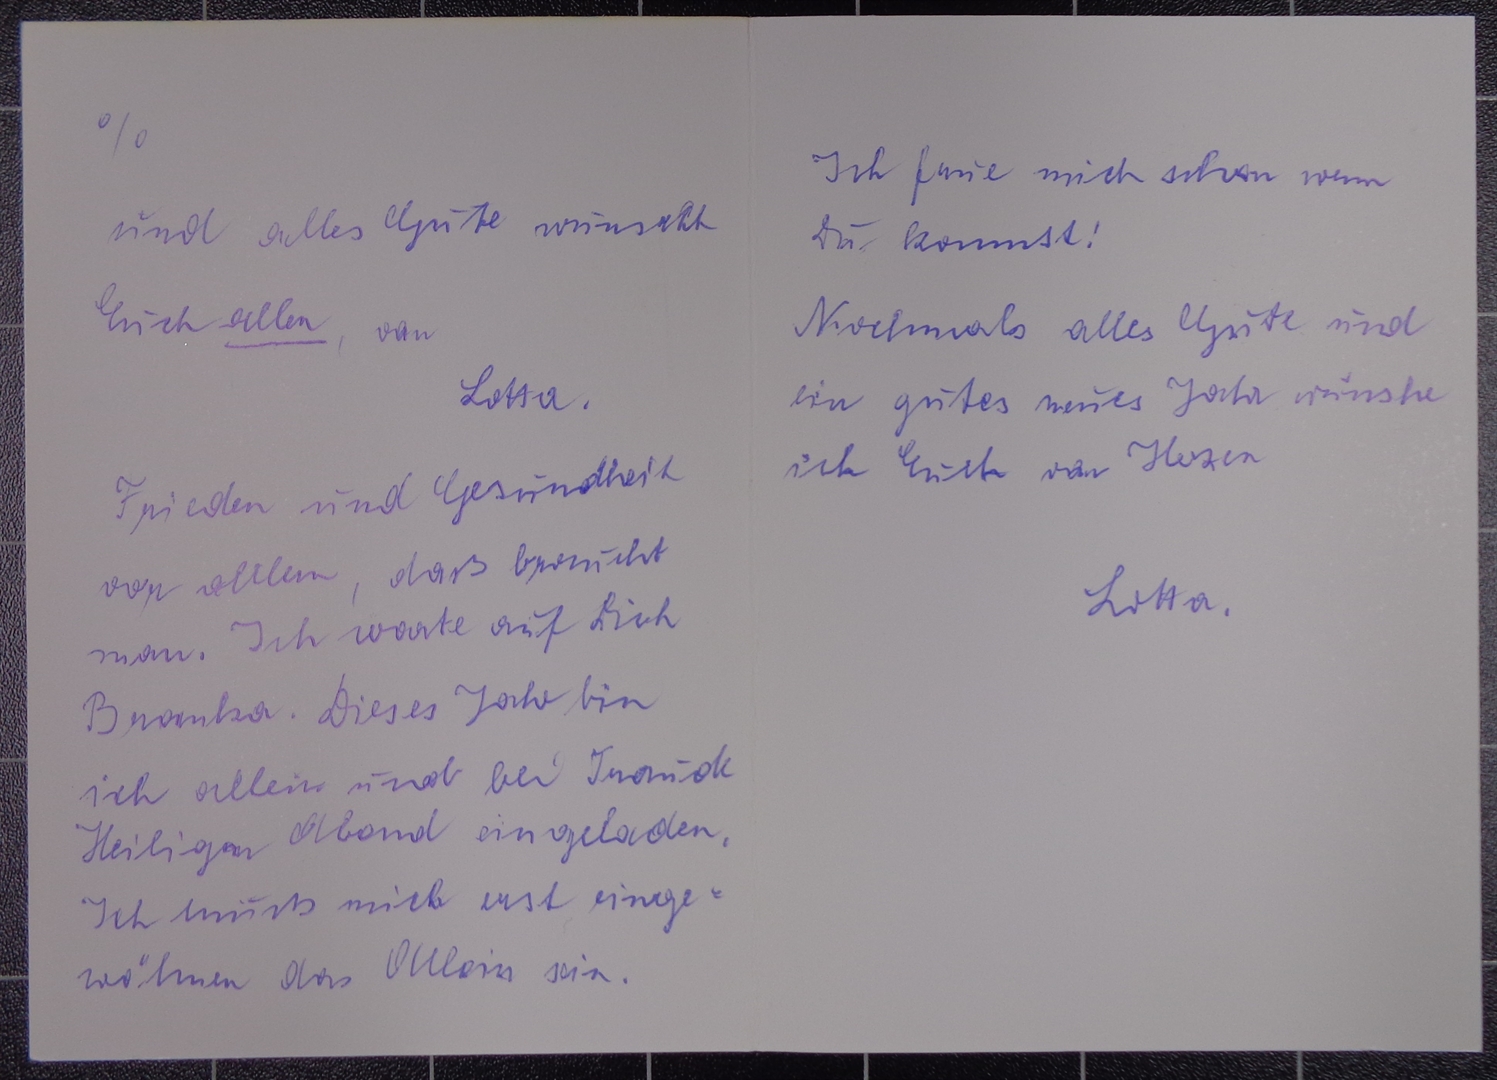 %
und alles Gute wünscht
Euch allen, von
Lotta.
Frieden und Gesundheit
vor allem, daß braucht
man. Ich warte auf Dich
Branka. Dieses Jahr bin
ich allein und bei Traude
Heiligen Abend eingeladen,
Ich muß mich erst einge=
wöhnen das Allein sein.
Ich freue mich schon wenn
Du kommst!
Nochmals alles Gute und
ein gutes neues Jahr wünsche
ich Euch von Herzen
Lotta.